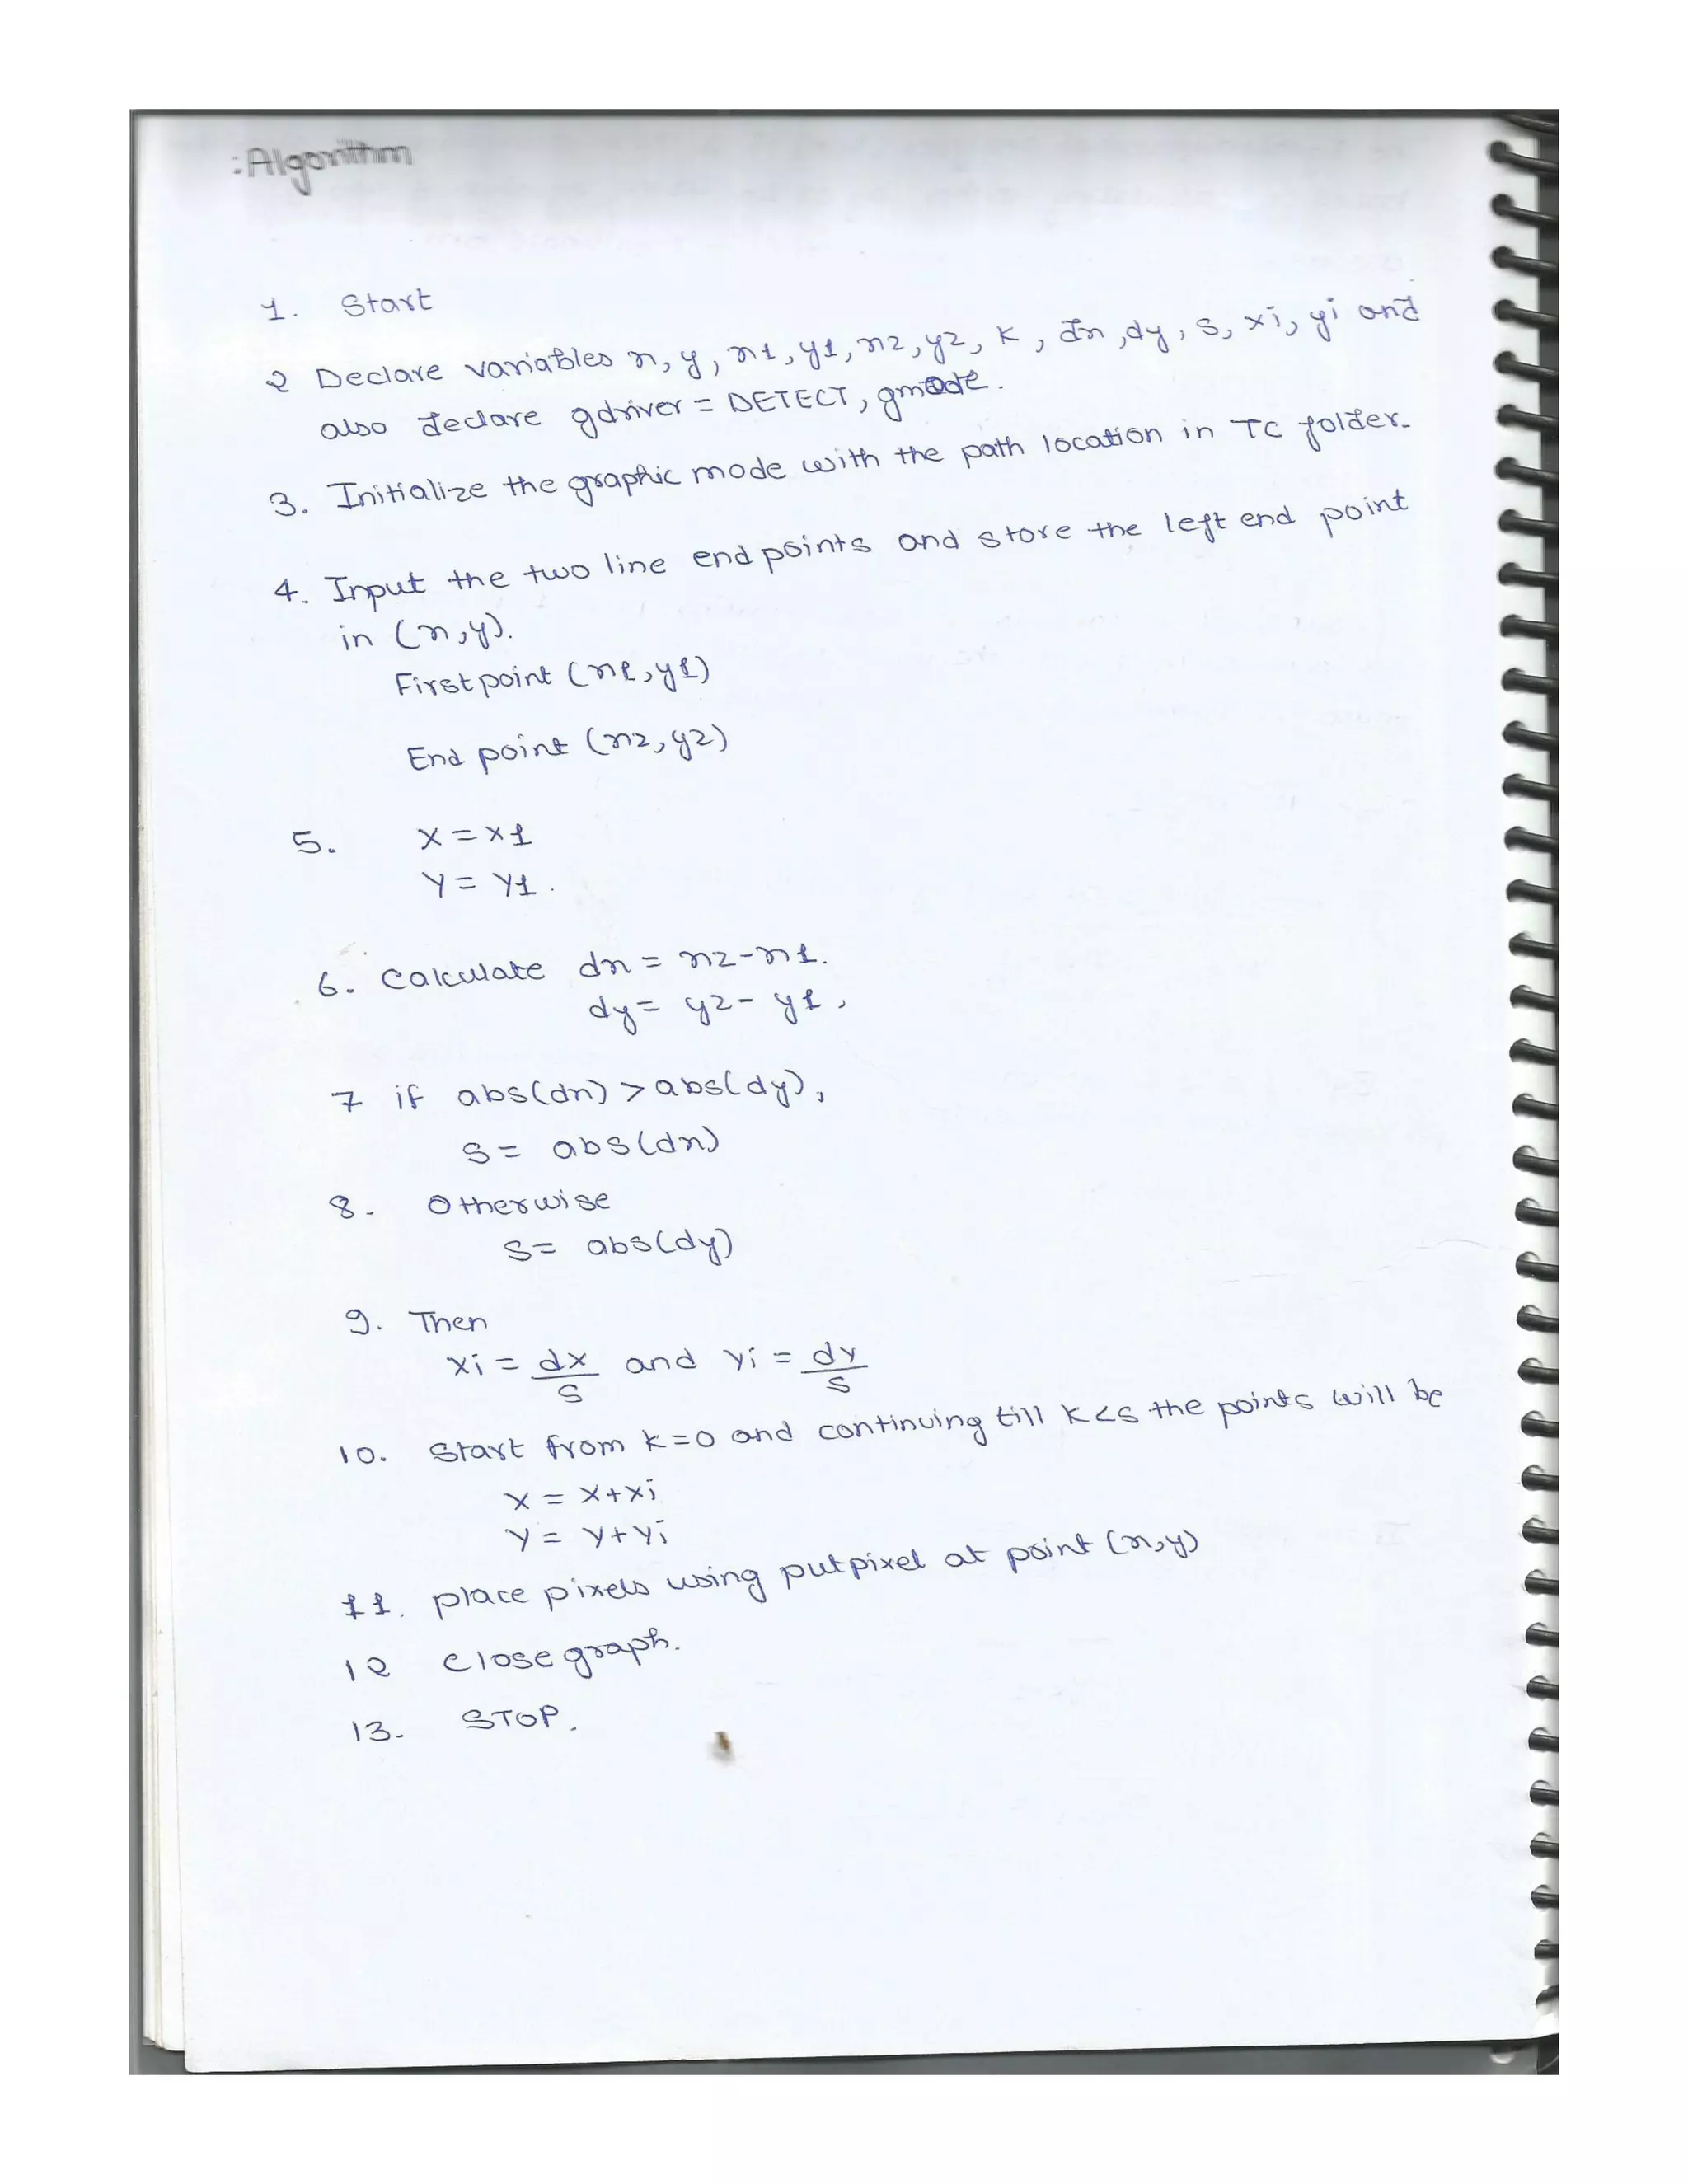 :Algorithm
1. Start
2 Declare variables x, y, x1, y1, x2, y2, k, dx, dy, s, xi, yi and
also declare gdriver = DETECT, gmode.
3. Initialize the graphic mode with the path location in TC folder.
4. Input the two line end points and store the left end point
in (x,y).
First point (x1,y1)
End point (x2,y2)
5. X = X1
Y = Y1.
6. Calculate dx = x2-x1.
dy = y2- y1,
7 if abs(dx) > abs(dy),
s = abs(dx)
8. Otherwise
s= abs(dy)
9. Then
xi = dx/s and yi = dy/s
10. Start from k=0 and continuing till k<s the points will be
X = X+xi
Y = Y+Yi
11. place pixels using putpixel at point (x,y)
12 Close graph.
13. STOP.